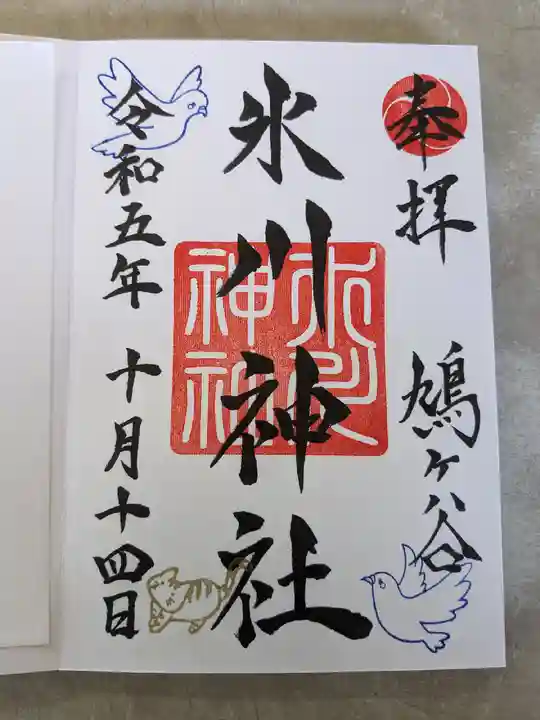 奉拝
鳩ヶ谷
氷川神社
氷川神社
令和五年
十月十四日